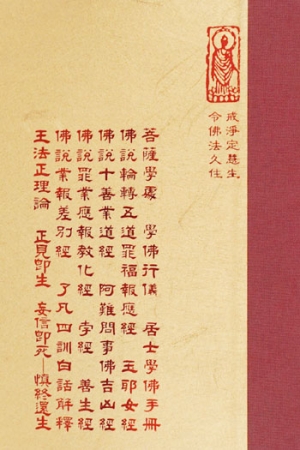 戒淨定慧生
令佛法久住
菩薩學處 學佛行儀 居士學佛手冊
佛說輪轉五道罪福報應經 玉耶女經
佛說十善業道經 阿難問事佛吉凶經
佛說罪業應報教化經 孛經 善生經
佛說業報差別經 了凡四訓白話解釋
王法正理論 正見即生 妄信即死─慎終還生